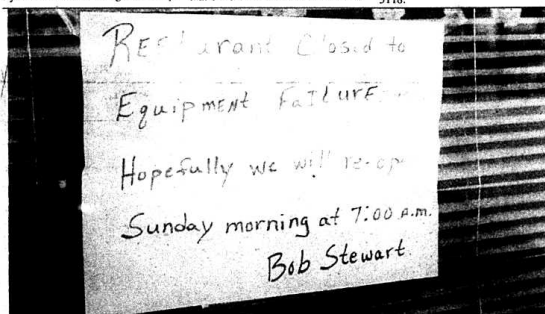 5118.
Closed to
Equipment Failure
Hopefully we will
Sunday morning at 7:00 a.m.
Bob Stewart